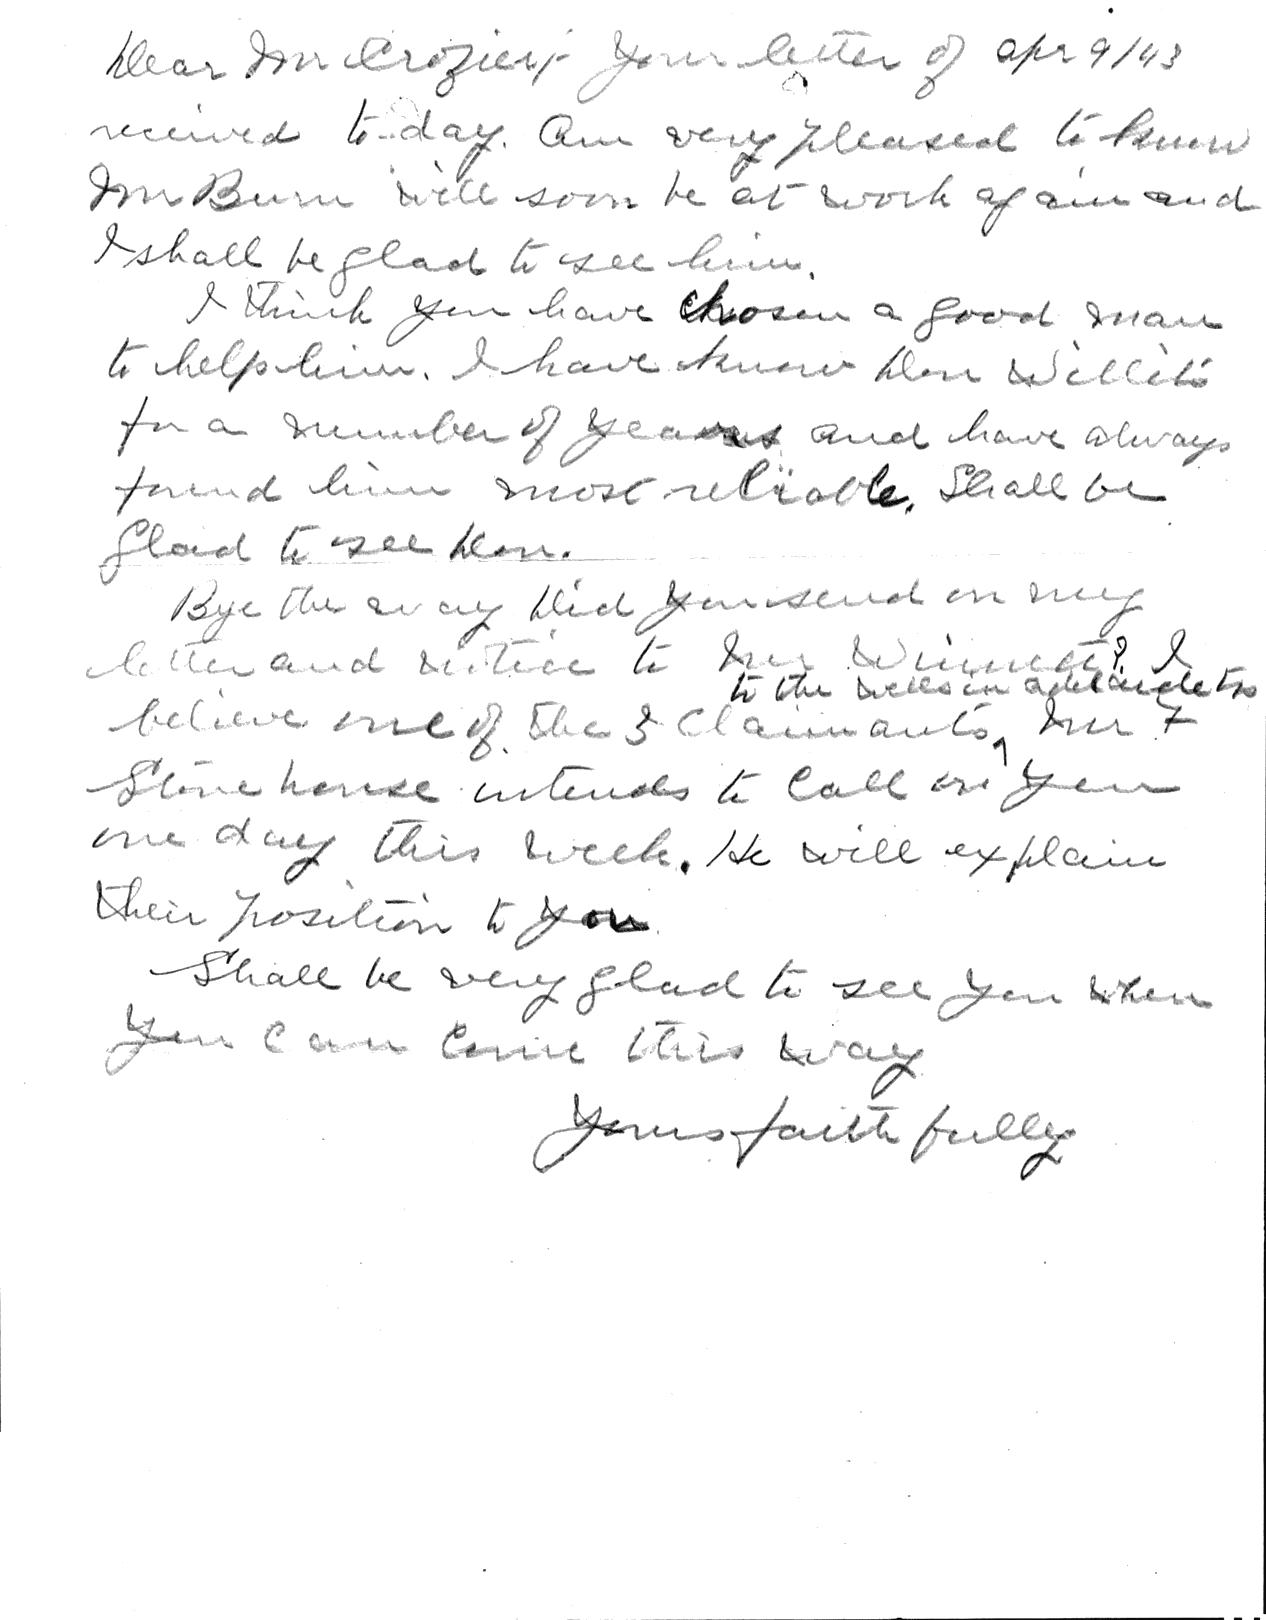 Dear Mr Crozier;- Your letter of Apr 9/43
received to-day. Am very pleased to know
Mr Burn will soon be at work again and
I shall be glad to see him.
I think you have chosen a good man
to help him. I have know Don Willits
for a number of years and have always
found him most reliable. Shall be
glad to see Don.
Bye the way Did you send on my
letter and notice to Mr Winnett? I
to the wells in adelaide tsp
believe one of the 3 Claimants, Mr F
Stonehouse intends to Call on you
one day this week. He will explain
their position to you
Shall be very glad to see you when
you can Come this way
Yours faithfully